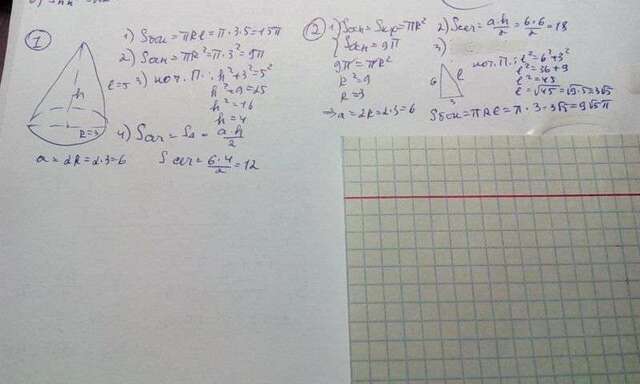 ①
1) Sбок = πRl = π·3·5 = 15π
2) Sосн = πR² = π·3² = 9π
l=5
3) по т. П.: h²+3²=5²
h²+9=25
h²=16
h=4
h
R=3
4) Sсеч = S△ = a·h/2
a = 2R = 2·3 = 6
Sсеч = 6·4/2 = 12
②
1) Sосн = Sкр = πR²
{ Sосн = 9π
9π = πR²
R²=9
R=3
⇒ a = 2R = 2·3 = 6
2) Sсеч = a·h/2 = 6·6/2 = 18
3)
по т. П.: l² = 6²+3²
l² = 36+9
l² = 45
l = √45 = √9·5 = 3√5
6
l
3
Sбок = πRl = π·3·3√5 = 9√5π